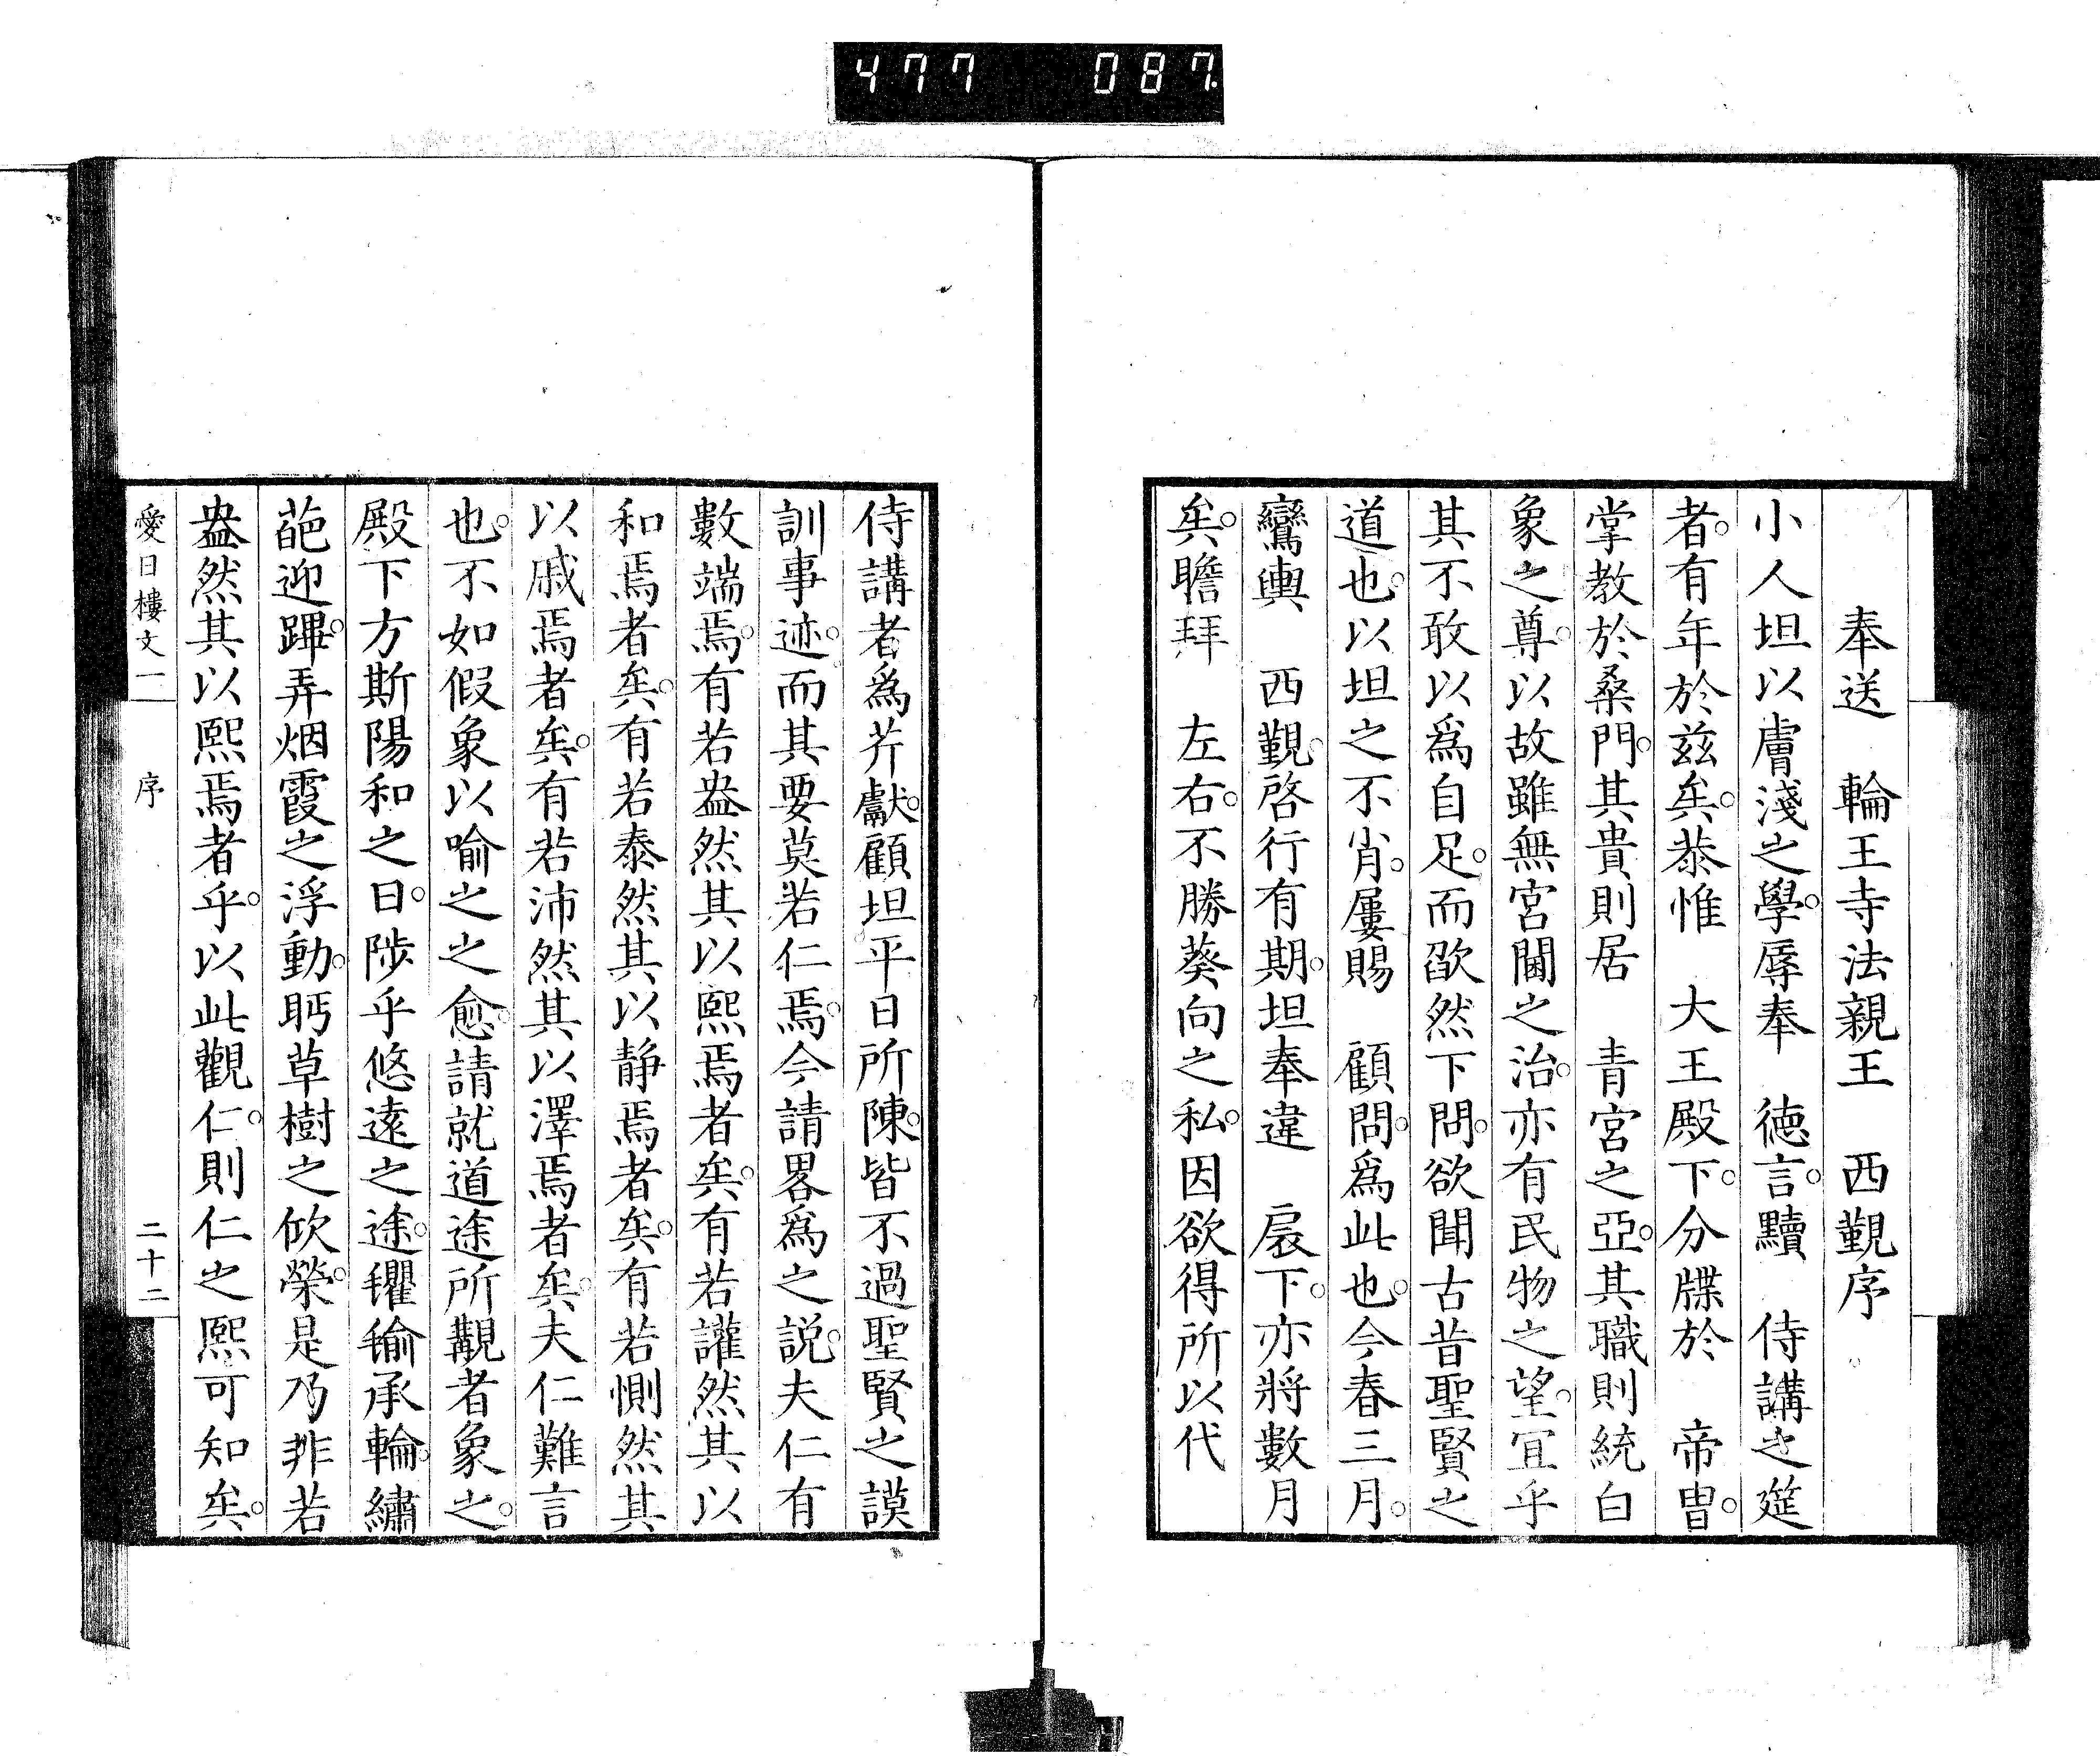 477 087
奉送　輪王寺法親王　西覲序
小人坦以膚淺之學。辱奉　徳言。黷　侍講之筵
者。有年於兹矣。恭惟　大王殿下。分牒於　帝胄。
掌教於桑門。其貴則居　青宮之亞。其職則統白
象之尊。以故雖無宮闈之治。亦有民物之望。宜乎
其不敢以爲自足。而欿然下問。欲聞古昔聖賢之
道也。以坦之不肖。屢賜　顧問。爲此也。今春三月。
鸞輿　西覲。啓行有期。坦奉違　扆下。亦將數月
矣。瞻拜　左右。不勝葵向之私。因欲得所以代
侍講者爲芹獻。顧坦平日所陳。皆不過聖賢之謨
訓事迹。而其要莫若仁焉。今請畧爲之説。夫仁有
數端焉。有若盎然其以熙焉者矣。有若讙然其以
和焉者矣。有若泰然其以静焉者矣。有若惻然其
以戚焉者矣。有若沛然其以澤焉者矣。夫仁難言
也。不如假象以喻之之愈。請就道途所覩者象之。
殿下方斯陽和之日。陟乎悠遠之途。忂㺄承輪。繡
葩迎蹕。弄烟霞之浮動。眄草樹之欣榮。是乃非若
盎然其以熙焉者乎。以此觀仁。則仁之熙可知矣。
愛日樓文一　序　二十二